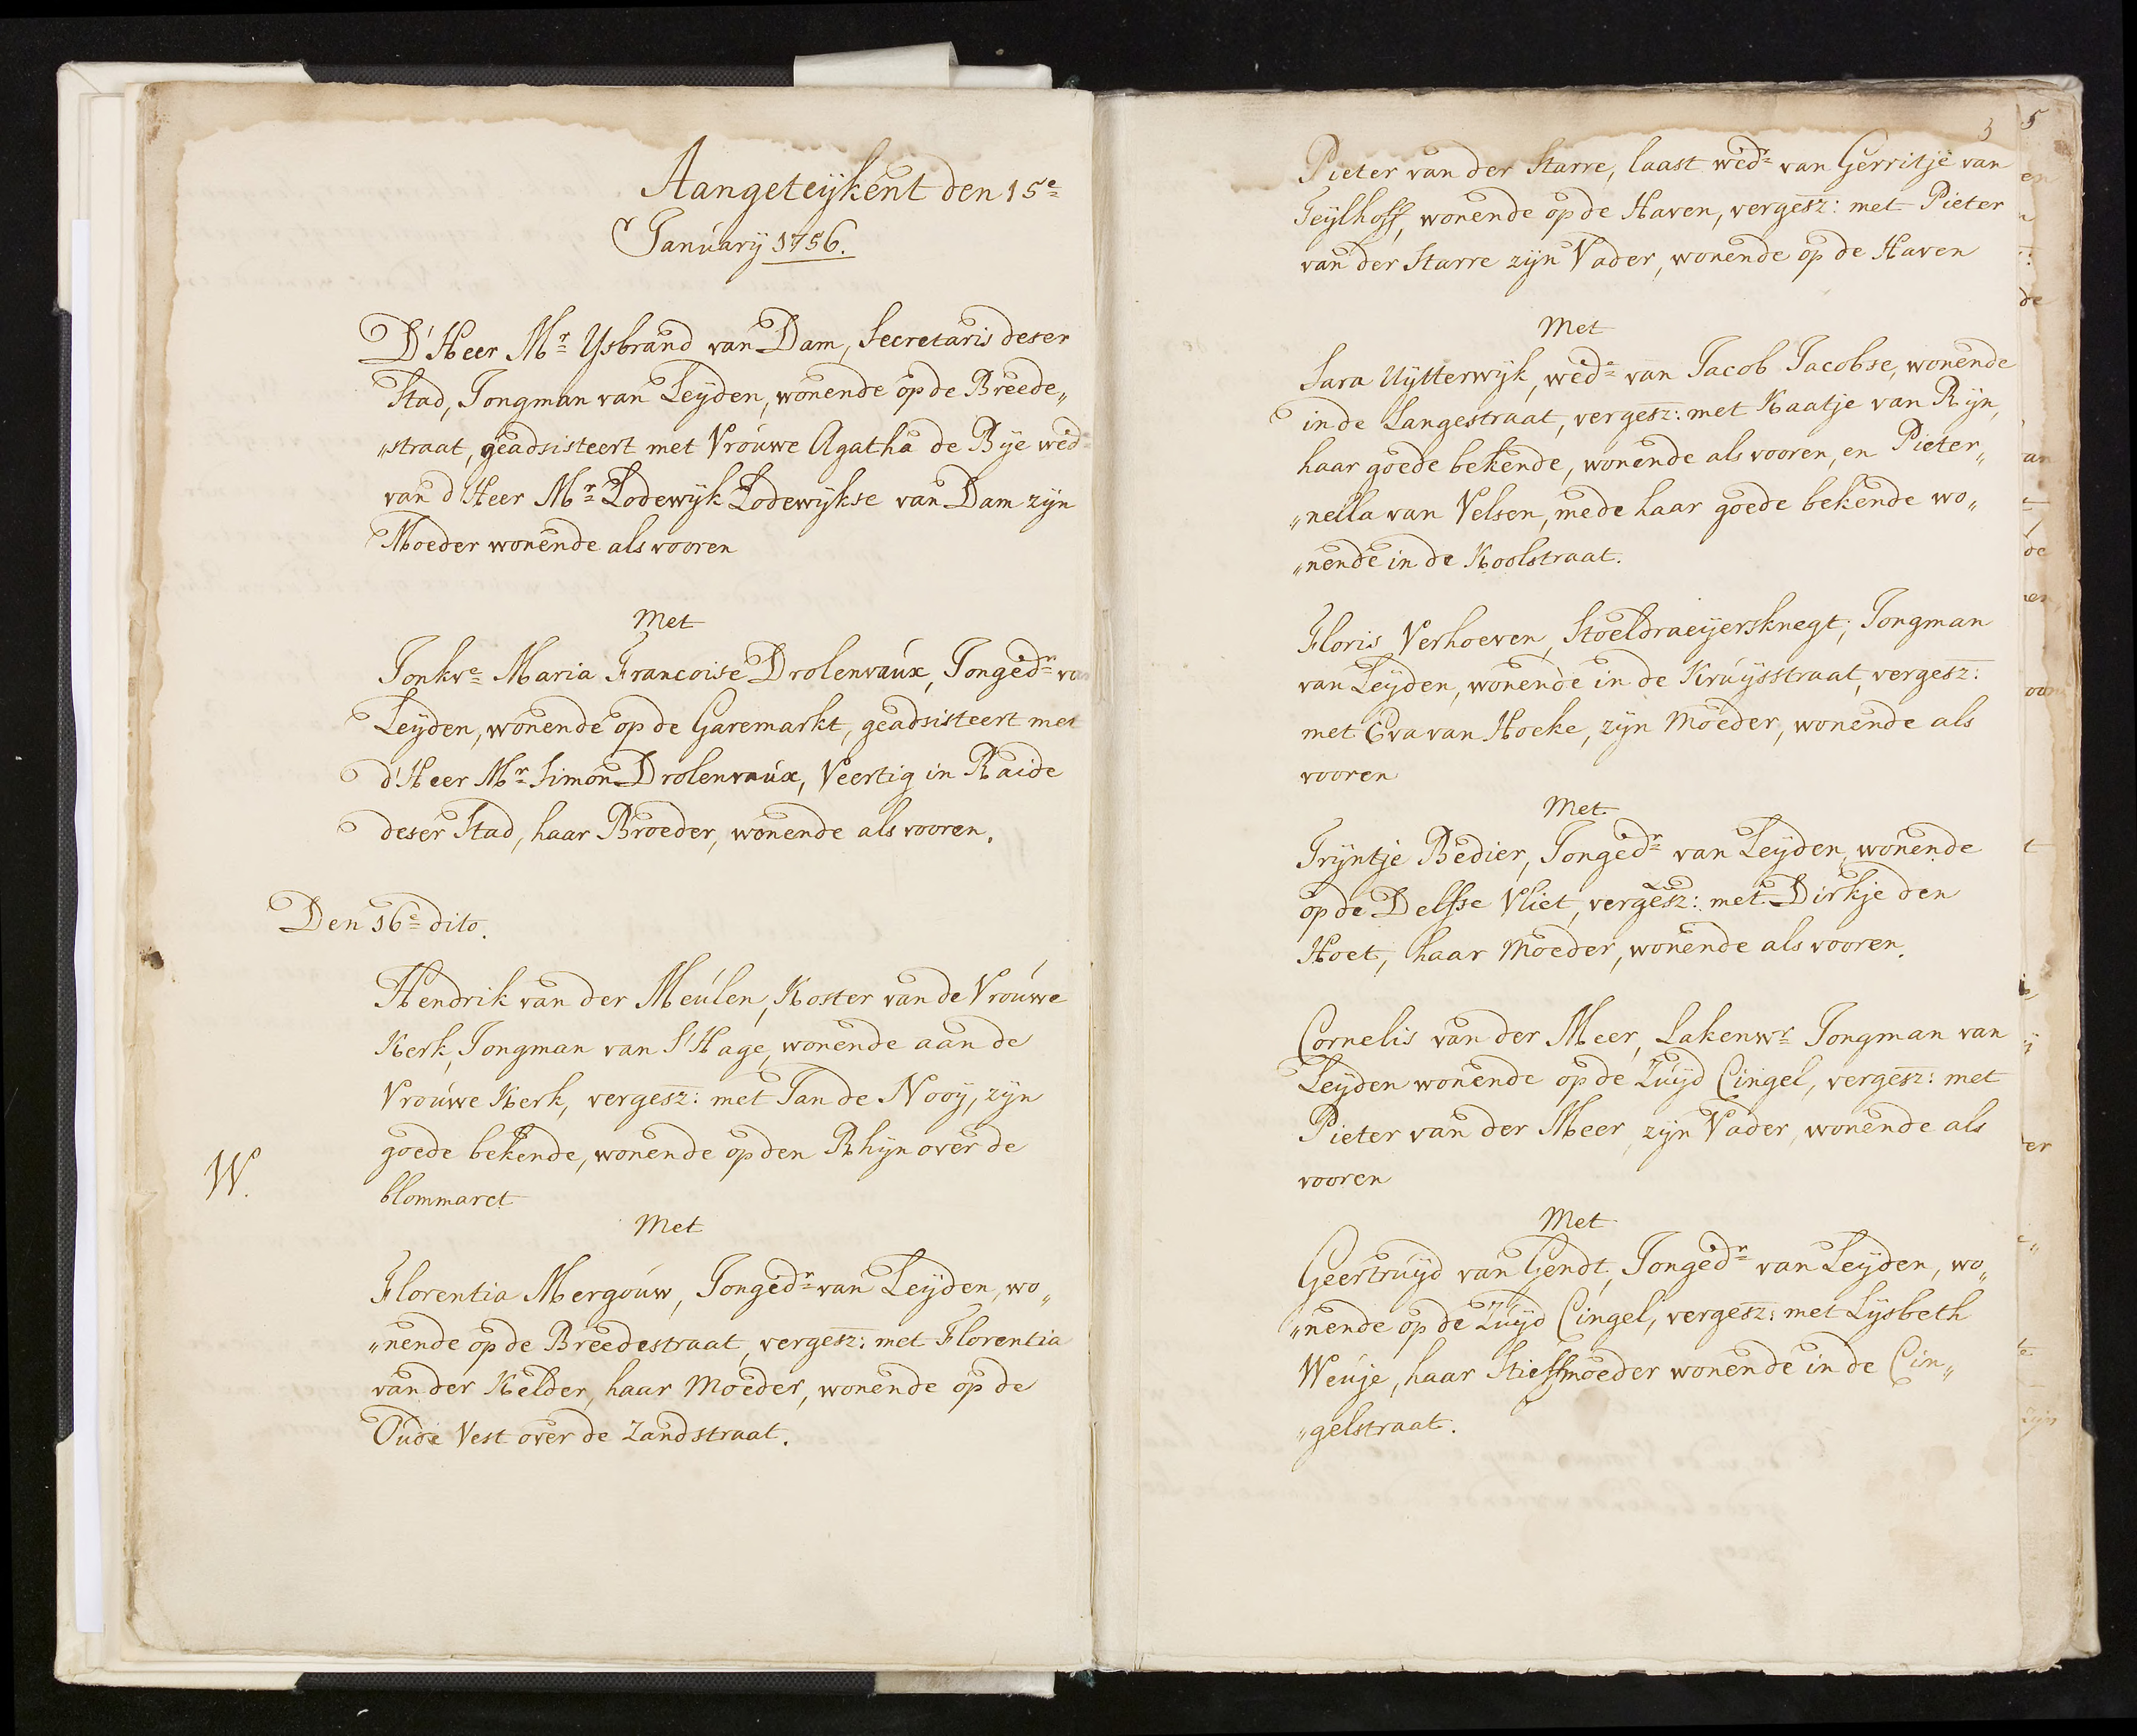 Aangeteijkent den 15e
Januarij 1756.
D'Heer Mr Ysbrand van Dam, Secretaris deser
Stad, Jongman van Leyden, wonende op de Breede„
„straat, geadsisteert met Vrouwe Agatha de Bije wede
van d'Heer Mr Lodewyk Lodewykse van Dam zyn
Moeder wonende als vooren
Met
Jonkve Maria Francoise Drolenvaux, Jongedr van
Leyden, wonende op de Garemarkt, geadsisteert met
d'Heer Mr Simon Drolenvaux, Veertig in Raide
deser Stad, haar Broeder, wonende als vooren.
Den 16e dito.
Hendrik van der Meulen, Koster van de Vrouwe
Kerk, Jongman van S'Hage, wonende aan de
Vrouwe Kerk, vergesz: met Jan de Nooij, zyn
goede bekende, wonende op den Rhijn over de
W.
blommarct
Met
Florentia Mergouw, Jongedr van Leyden, wo„
„nende op de Breedestraat, vergesz: met Florentia
van der Kelder, haar Moeder, wonende op de
Oude Vest over de Zandstraat.
3
5
Pieter van der Starre, laast wedr van Gerritje van
Teylhoff, wonende op de Haven, vergesz: met Pieter
van der Starre zijn Vader, wonende op de Haven
Met
Sara Uytterwyk, wede van Jacob Jacobse, wonende
in de Langestraat, vergesz: met Kaatje van Ryn,
haar goede bekende, wonende als vooren, en Pieter„
„nella van Velsen, mede haar goede bekende wo„
„nende in de Koolstraat.
Floris Verhoeven, Stoeldraeijersknegt, Jongman
van Leyden, wonende in de Kruysstraat, vergesz:
met Eva van Hoeke, zyn Moeder, wonende als
vooren
Met
Trijntje Bedier, Jongedr van Leyden, wonende
op de Delfse Vliet, vergesz: met Dirkje den
Hoet, haar Moeder, wonende als vooren.
Cornelis van der Meer, Lakenwr Jongman van
Leyden wonende op de Zuyd Cingel, vergesz: met
Pieter van der Meer, zyn Vader, wonende als
vooren
Met
Geertruyd van Gendt, Jongedr van Leyden, wo„
„nende op de Zuyd Cingel, vergesz: met Lysbeth
Weuje, haar Stiefmoeder wonende in de Cin„
„gelstraat.